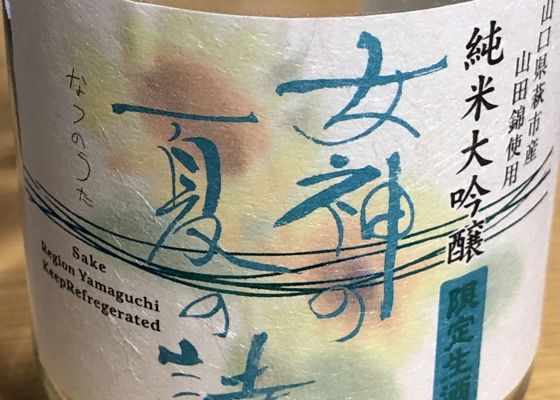 山口県萩市産
山田錦使用
純米大吟醸
限定生酒
女神の
夏の詩
なつのうた
Sake
Region Yamaguchi
KeepRefregerated